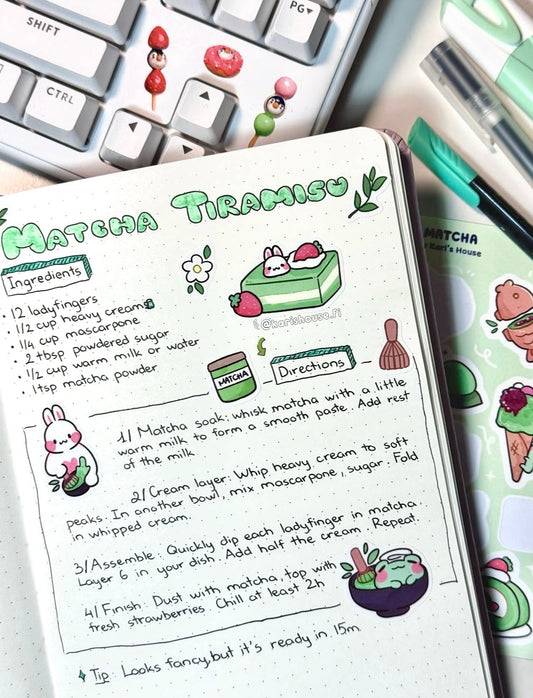 SHIFT
CTRL
PG▼
MATCHA TIRAMISU
Ingredients
• 12 ladyfingers
• 1/2 cup heavy creams
• 1/4 cup mascarpone
• 2 tbsp powdered sugar
• 1/2 cup warm milk or water
• 1 tsp matcha powder
@karishouse.fi
MATCHA
Directions
1/ Matcha soak: whisk matcha with a little
warm milk to form a smooth paste. Add rest
of the milk.
2/ Cream layer: Whip heavy cream to soft
peaks. In another bowl, mix mascarpone, sugar. Fold
in whipped cream.
3/ Assemble: Quickly dip each ladyfinger in matcha.
Layer 6 in your dish. Add half the cream. Repeat.
4/ Finish: Dust with matcha, top with
fresh strawberries. Chill at least 2h
Tip: Looks fancy, but it's ready in 15m
MATCHA
Kari's House